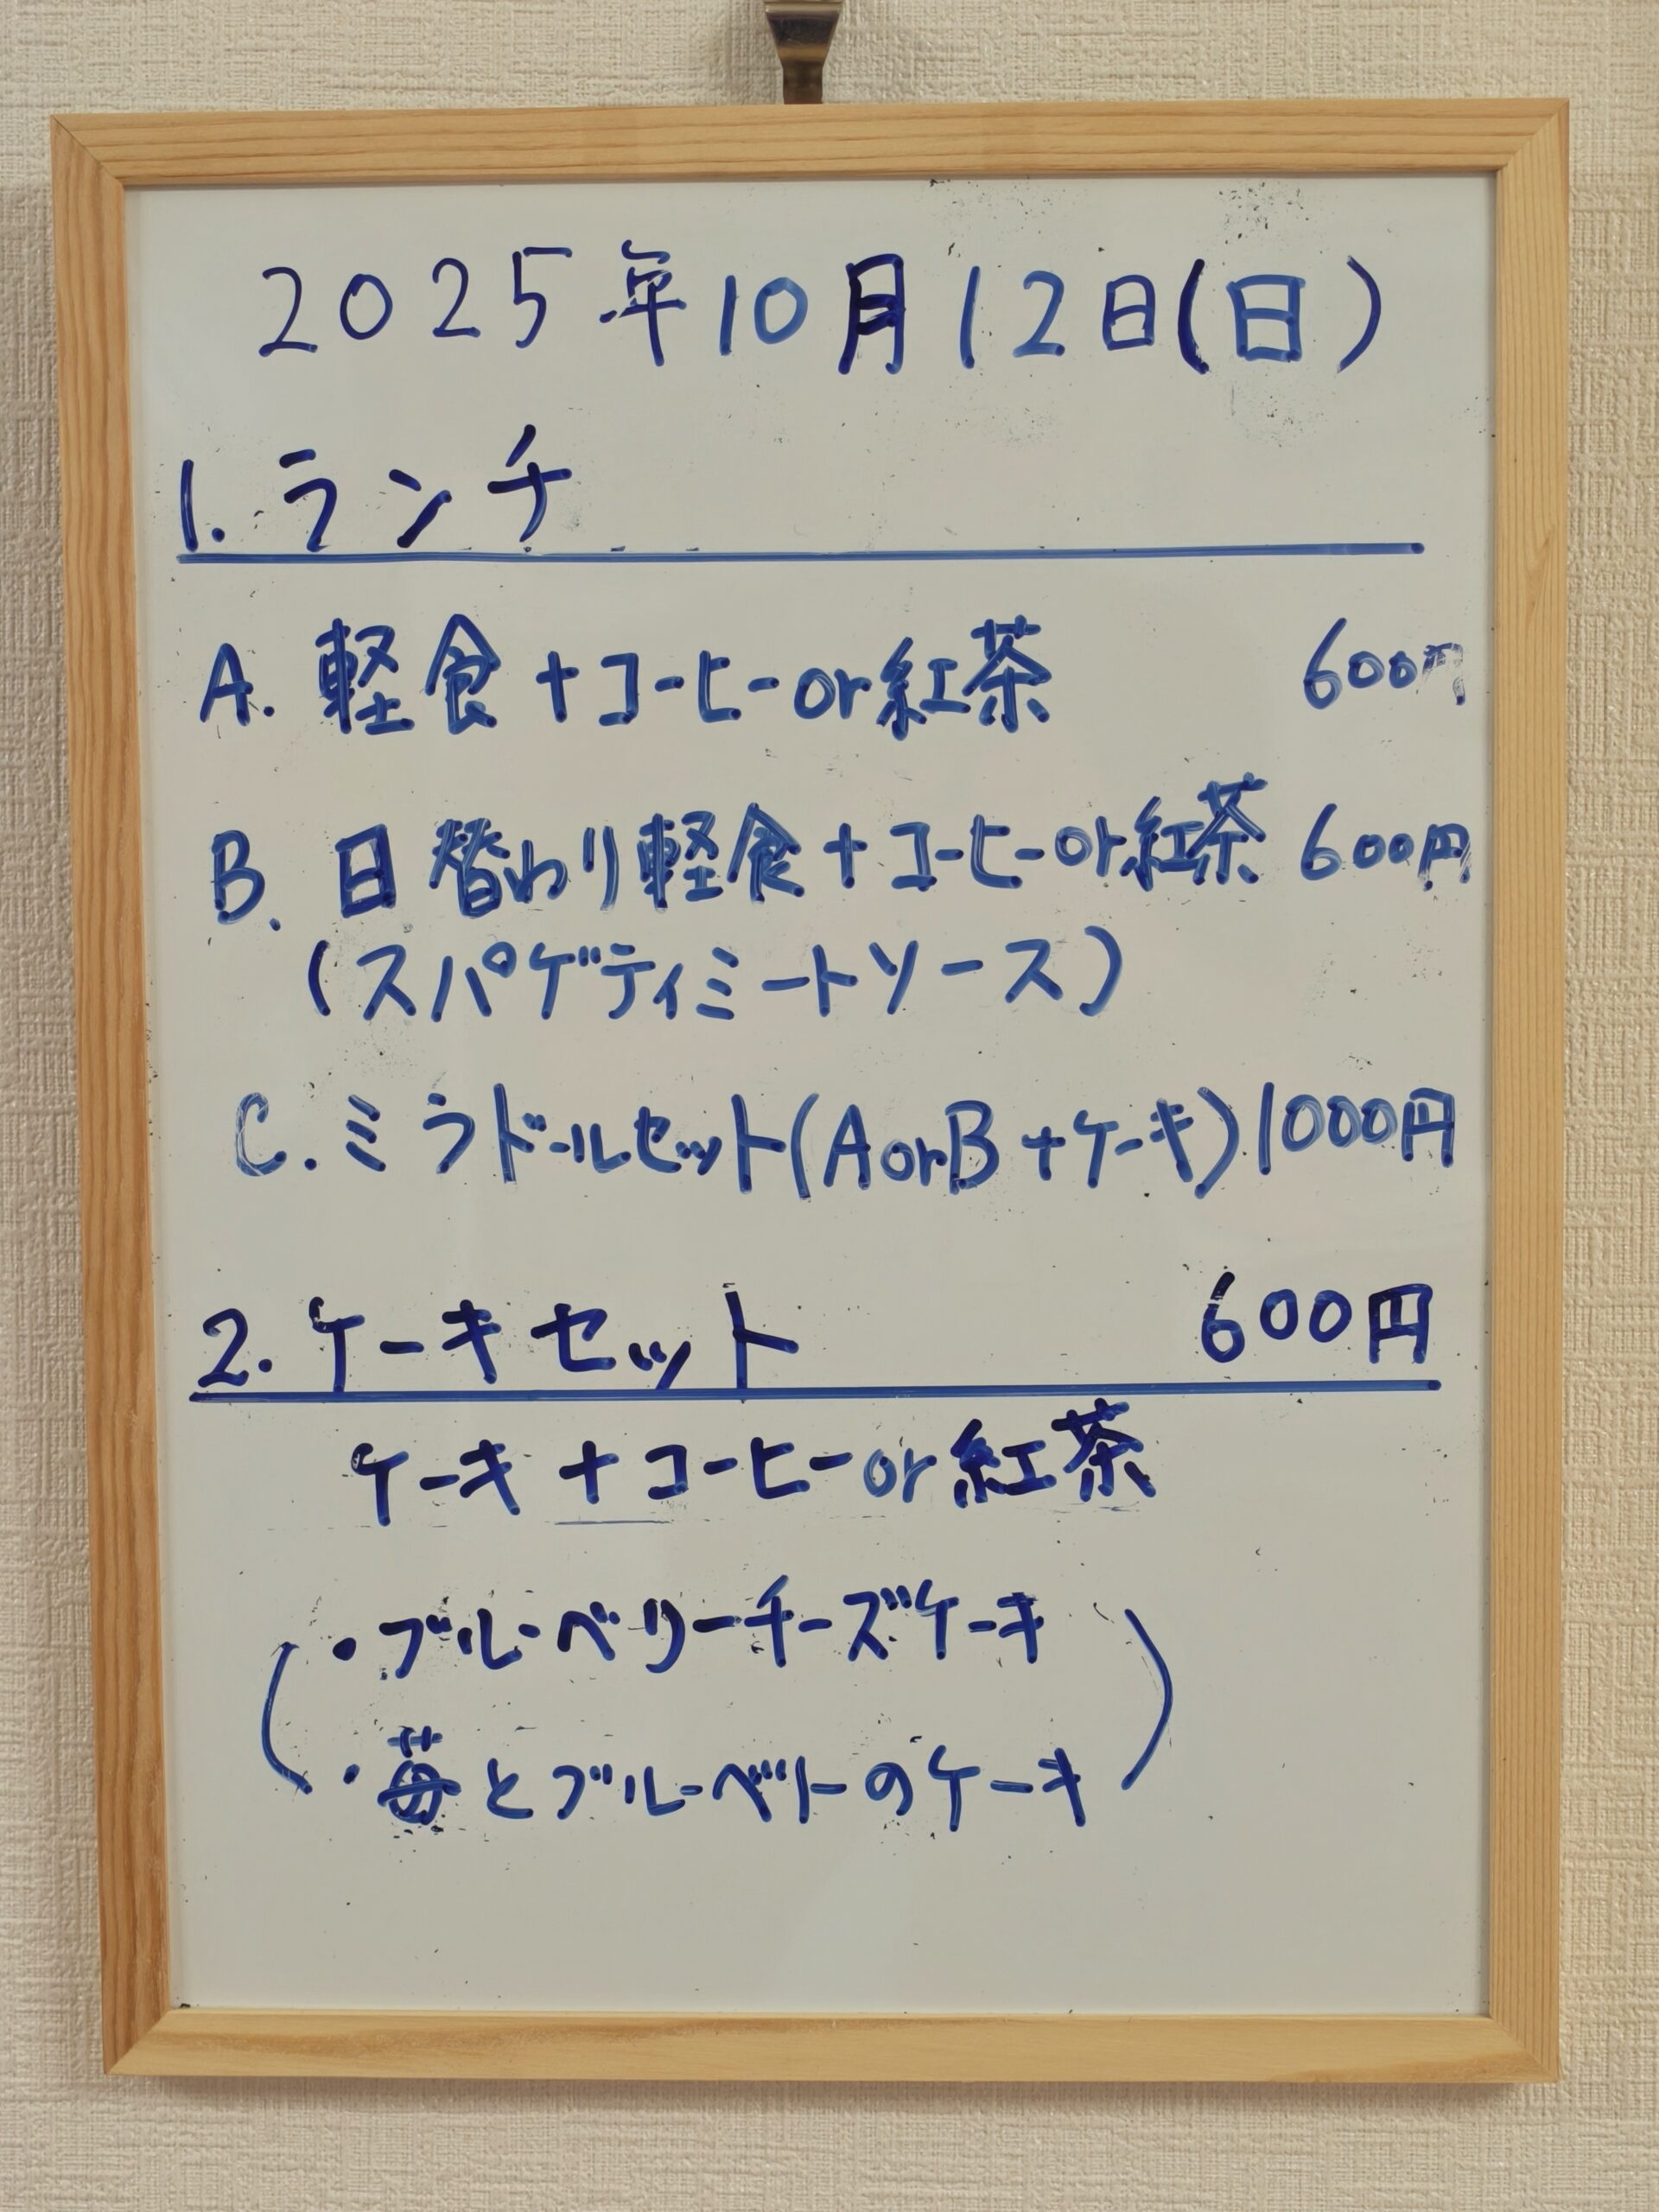 2025年10月12日(日)
1. ランチ
A. 軽食+コーヒーor紅茶 600円
B. 日替わり軽食+コーヒーor紅茶 600円
(スパゲティミートソース)
C. ミラドールセット(AorB+ケーキ) 1000円
2. ケーキセット 600円
ケーキ+コーヒーor紅茶
(・ブルーベリーチーズケーキ
・苺とブルーベリーのケーキ)